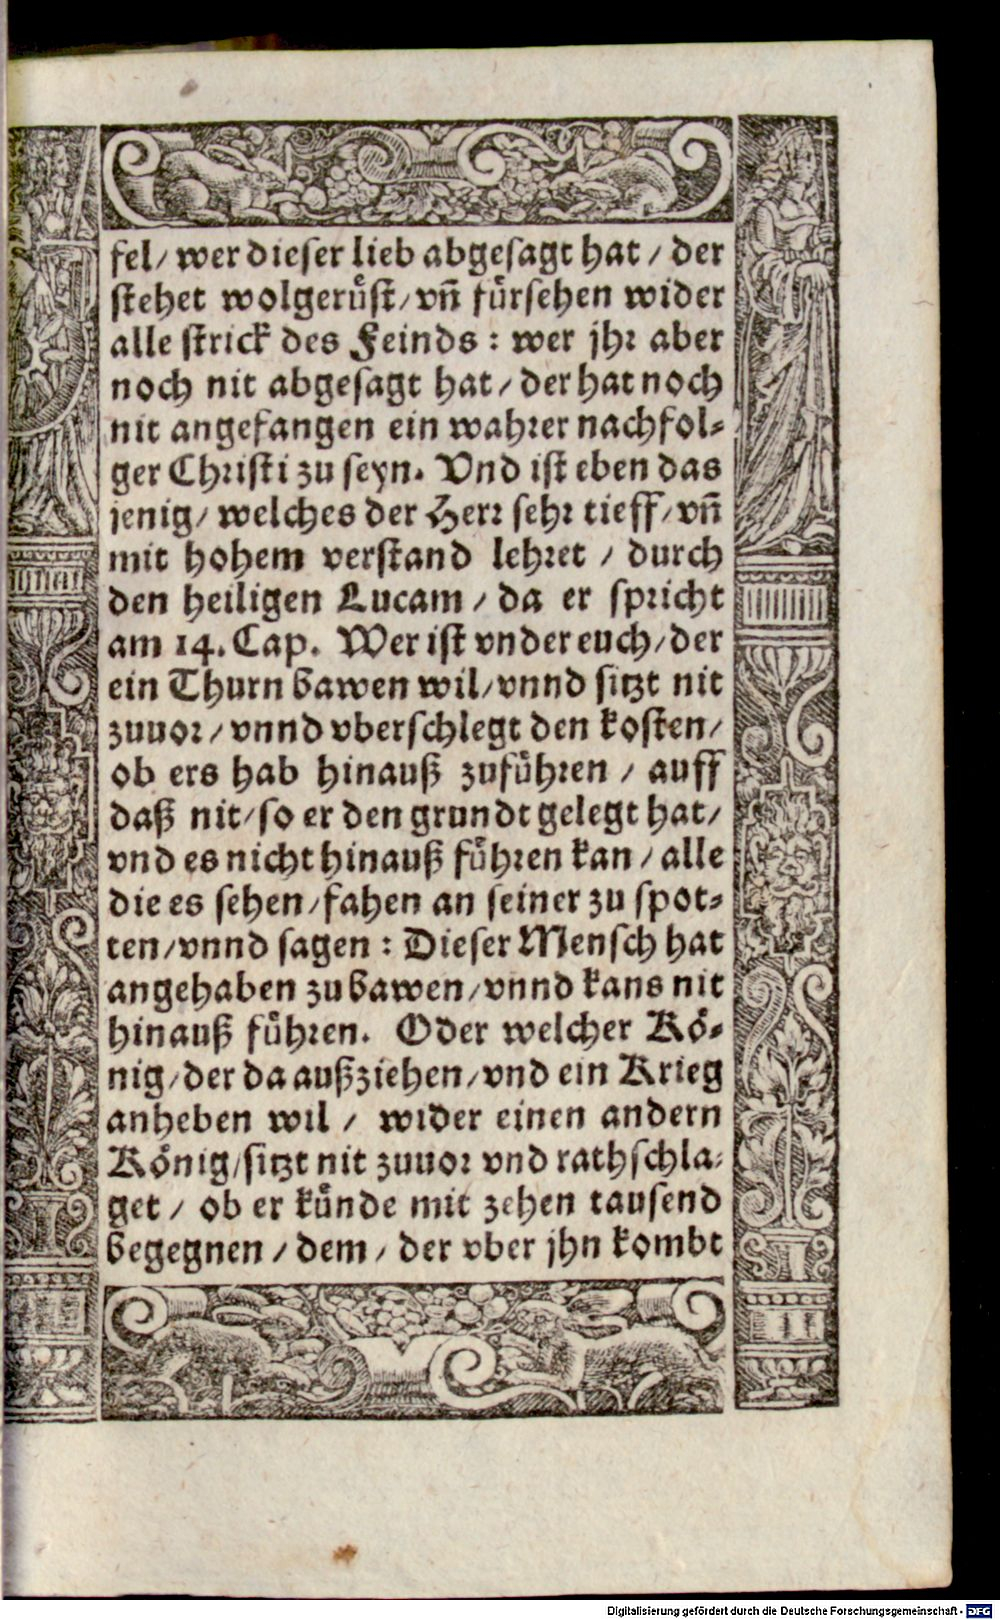 fel/ wer dieser lieb abgesagt hat / der
stehet wolgerůst/ vñ fürsehen wider
alle strick des Feinds : wer jhr aber
noch nit abgesagt hat/ der hat noch
nit angefangen ein wahrer nachfol-
ger Christi zu seyn. Vnd ist eben das
jenig/ welches der Herr sehr tieff/ vñ
mit hohem verstand lehret / durch
den heiligen Lucam / da er spricht
am 14. Cap. Wer ist vnder euch/ der
ein Thurn bawen wil/ vnnd sitzt nit
zuuor/ vnnd vberschlegt den kosten/
ob ers hab hinauß zuführen / auff
daß nit/ so er den grundt gelegt hat/
vnd es nicht hinauß führen kan/ alle
die es sehen/ fahen an seiner zu spot-
ten/ vnnd sagen : Dieser Mensch hat
angehaben zu bawen/ vnnd kans nit
hinauß führen. Oder welcher Kö-
nig/ der da außziehen/ vnd ein Krieg
anheben wil / wider einen andern
König/ sitzt nit zuuor vnd rathschla-
get / ob er künde mit zehen tausend
begegnen / dem/ der vber jhn kombt
Digitalisierung gefördert durch die Deutsche Forschungsgemeinschaft - DFG